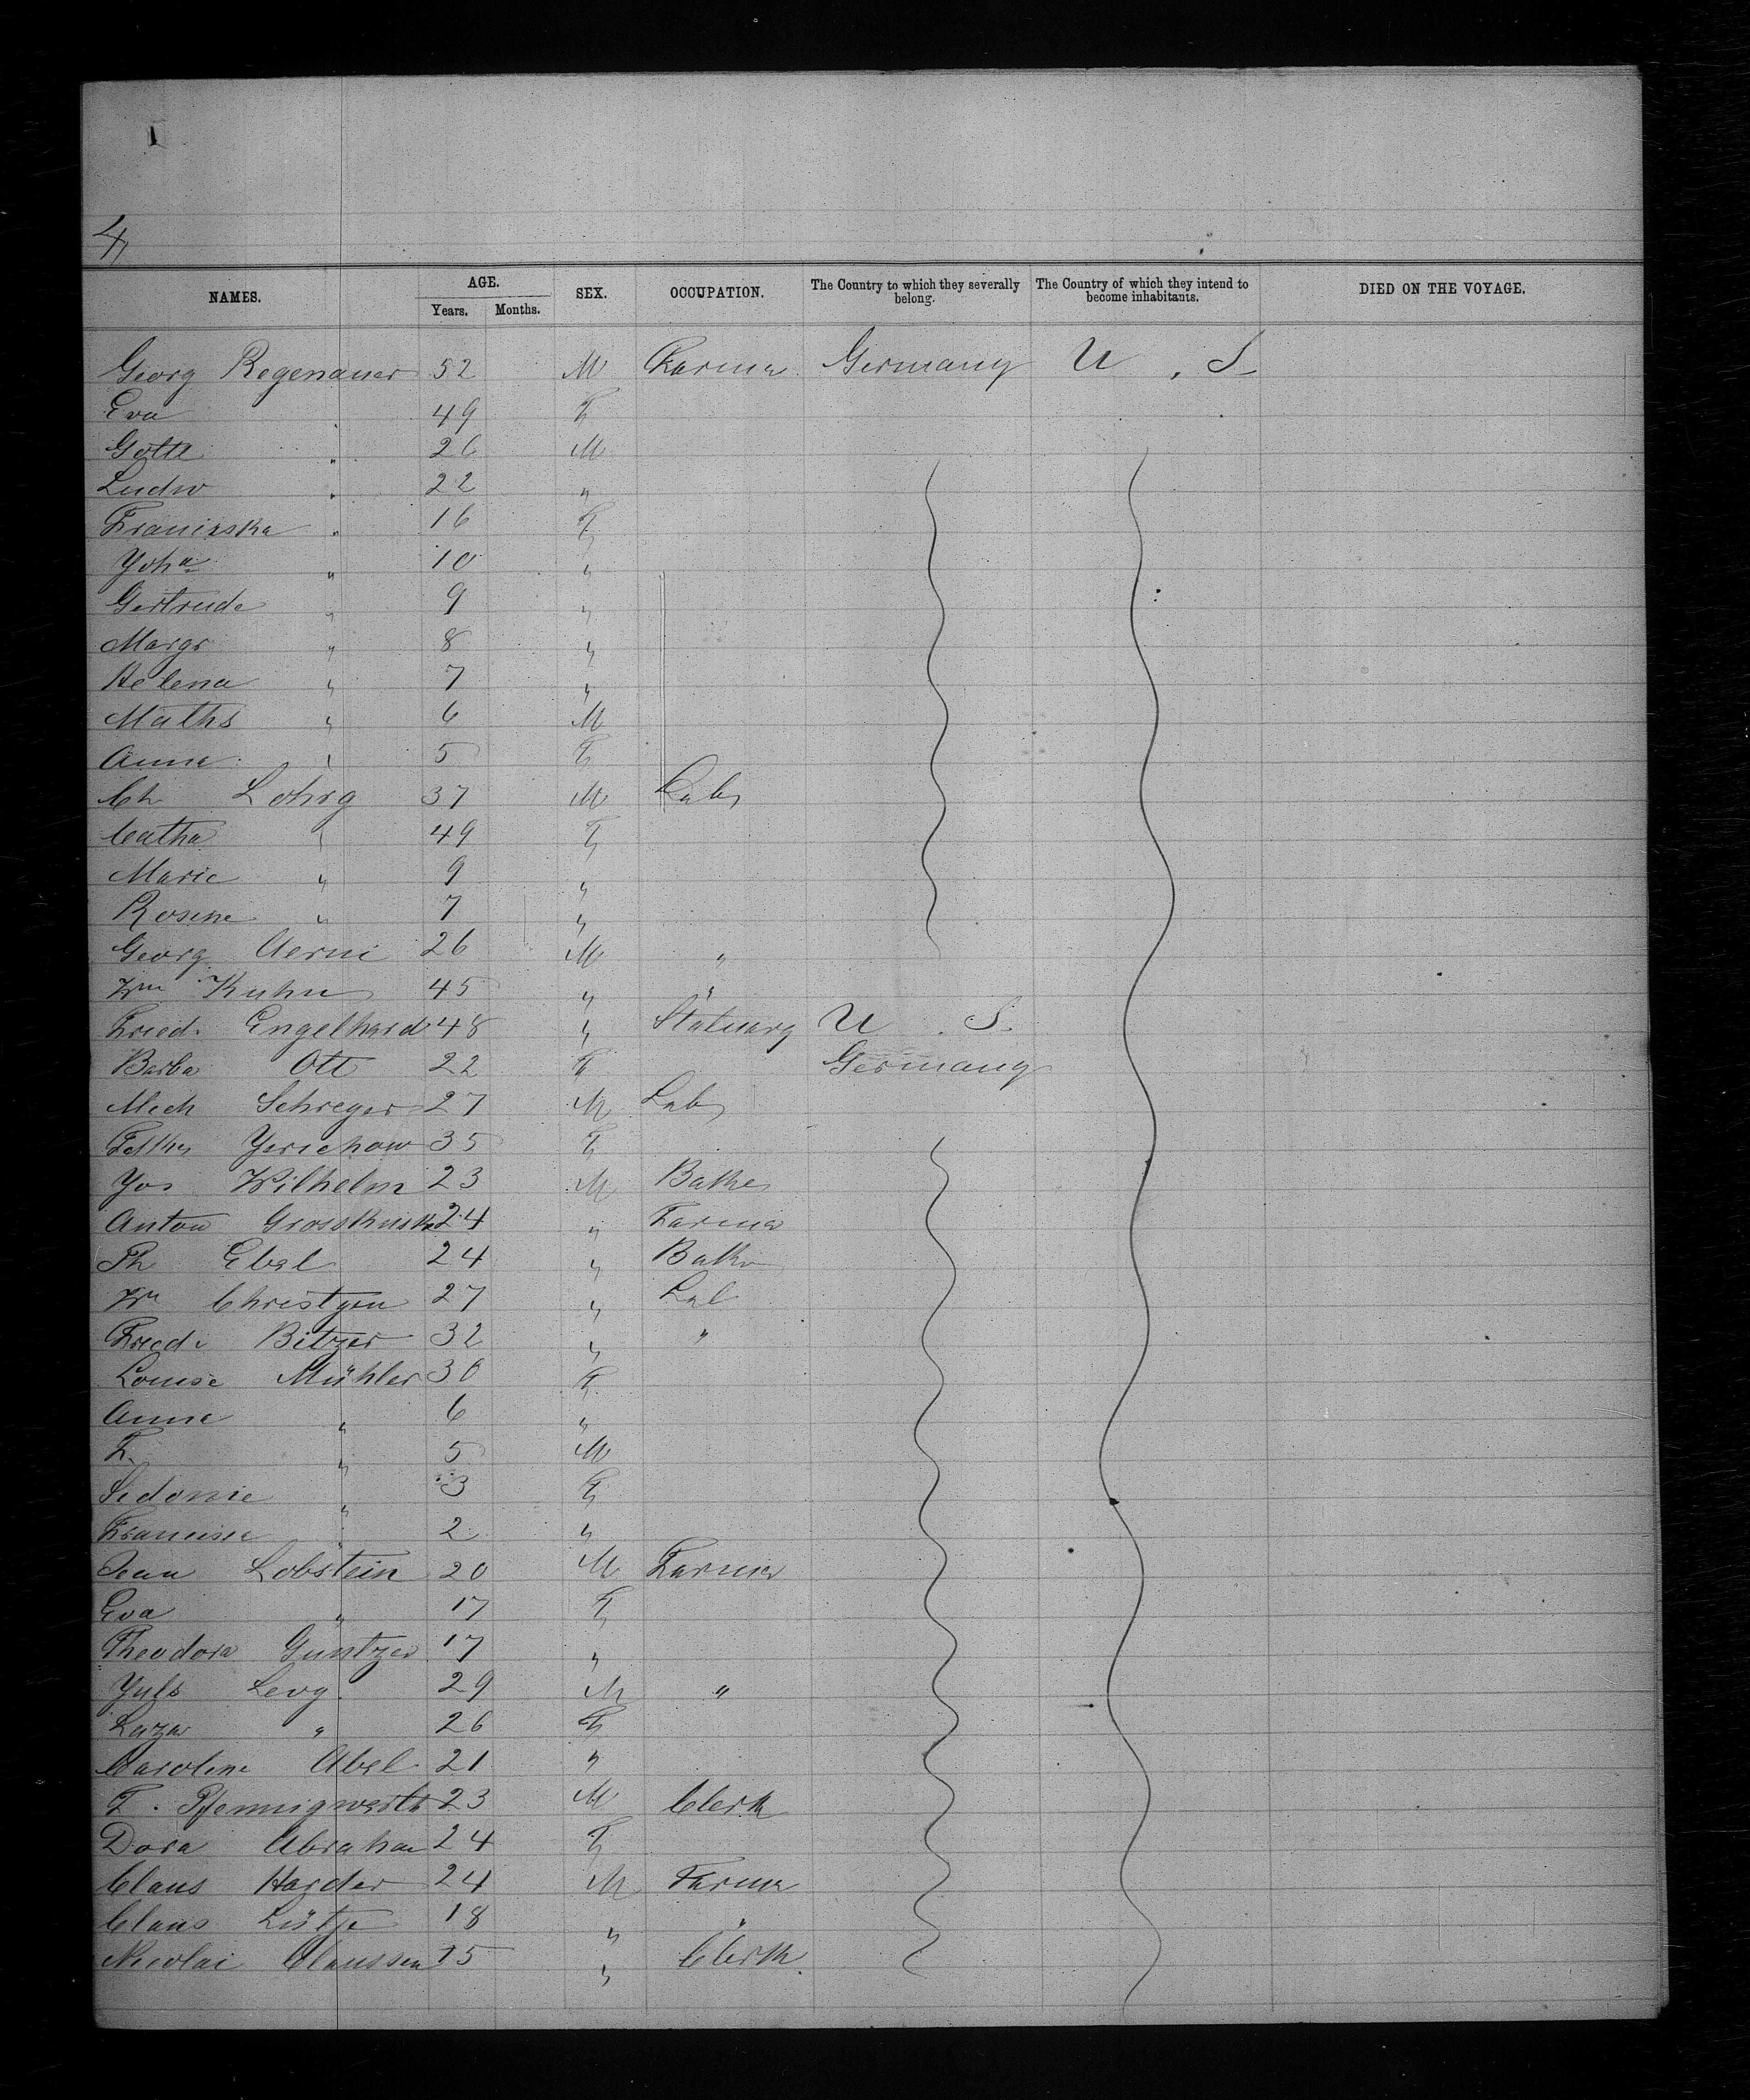 4
NAMES. AGE. SEX. OCCUPATION. The Country to which they severally belong. The Country of which they intend to become inhabitants. DIED ON THE VOYAGE.
Years. Months.
Georg Regenauer 52 M Farmer Germany U . S
Eva " 49 F
Gottl " 26 M
Ludw " 22 "
Franziska " 16 F
Yoha " 10 "
Gertrude " 9 "
Margr " 8 "
Helena " 7 "
Maths " 6 M
Anna " 5 F
Ch Lohrg 37 M Lab
Catha " 49 F
Marie " 9 "
Rosine " 7 "
Georg Aerni 26 M "
Wm Kuhn 45 " "
Fried. Engelhard 48 " Statuary U . S.
Barba Ott 22 F Germany
Mich Schreyer 27 M Lab
Yerichow 35 F
Yos Wilhelm 23 M Baker
Anton 24 " Farmer
Th Ebel 24 " Baker
Wm Christgen 27 " Lab
Fried. Bitzer 32 " "
Louise Mühler 30 F
Anna " 6 "
F. " 5 M
Sidonie " 3 F
Francisca " 2 "
Jean Lobstein 20 M Farmer
Eva " 17 F
Theodora Guntzer 17 "
Yuls Levy 29 M "
Lazar " 26 F
Caroline Abel 21 "
F. Pfennigwerth 23 M Clerk
Dora Abraham 24 F
Claus Harder 24 M Farmer
Claus Lütje 18 " "
Nicolai Claussen 15 " Clerk